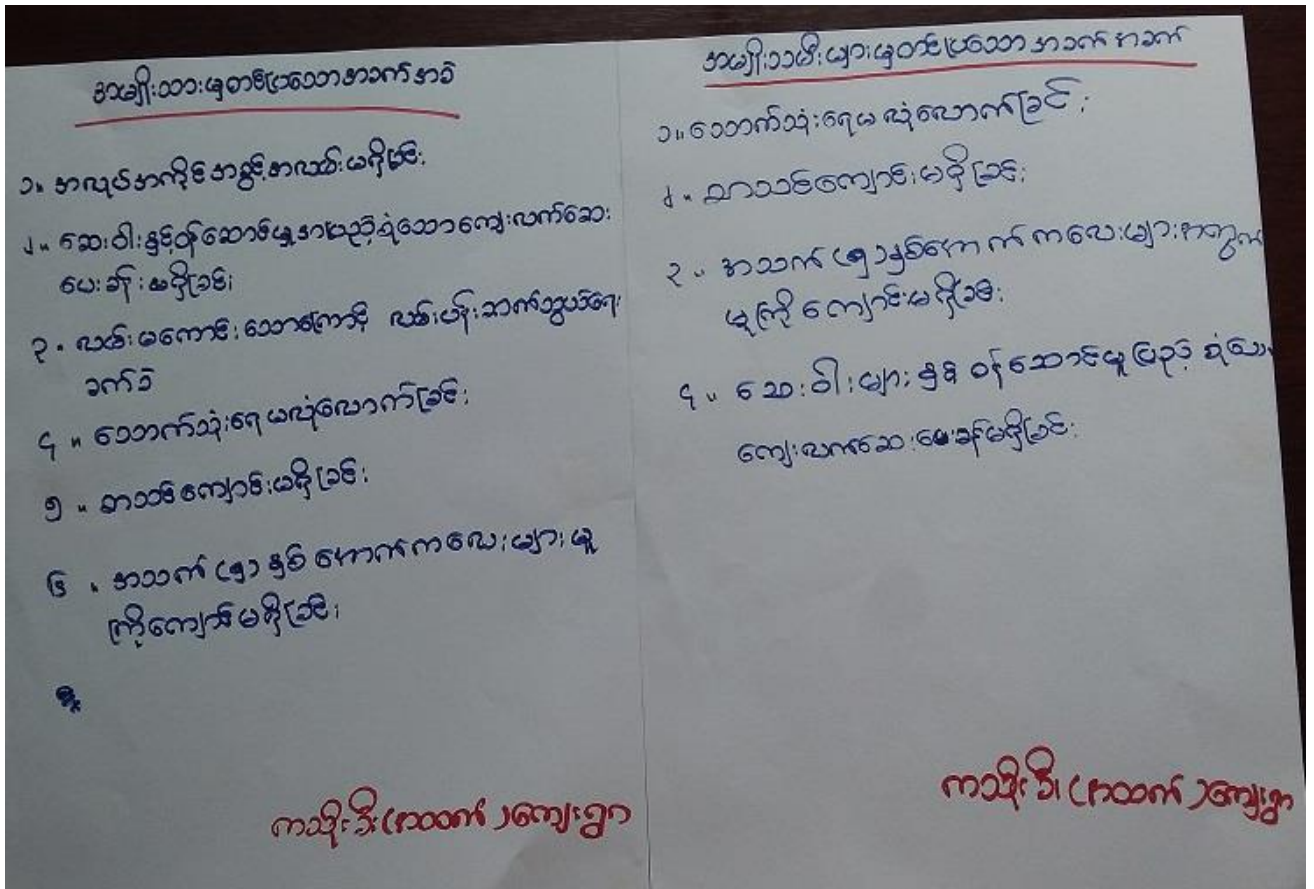 အမျိုးသားများမှတင်ပြသောအခက်အခဲ
၁။ အလုပ်အကိုင်အခွင့်အလမ်းမရှိခြင်း
၂။ ဆေးဝါးနှင့်ဝန်ဆောင်မှုအပြည့်စုံသောကျေးလက်ဆေး
ပေးခန်းမရှိခြင်း
၃။ လမ်းမကောင်းသောကြောင့် လမ်းပန်းဆက်သွယ်ရေး
ခက်ခဲ
၄။ သောက်သုံးရေမလုံလောက်ခြင်း
၅။ စာသင်ကျောင်းမရှိခြင်း
၆။ အသက် (၅) နှစ်အောက်ကလေးများ မူ
ကြိုကျောင်းမရှိခြင်း
ကသိုးဒိး (အထက်) ကျေးရွာ
အမျိုးသမီးများမှတင်ပြသော အခက်အခက်
၁။ သောက်သုံးရေမလုံလောက်ခြင်း
၂။ စာသင်ကျောင်းမရှိခြင်း
၃။ အသက် (၅) နှစ်အောက်ကလေးများအတွက်
မူကြိုကျောင်းမရှိခြင်း
၄။ ဆေးဝါးများ နှင့် ဝန်ဆောင်မှုပြည့်စုံသော
ကျေးလက်ဆေးပေးခန်းမရှိခြင်း
ကသိုးဒိး (အထက်) ကျေးရွာ